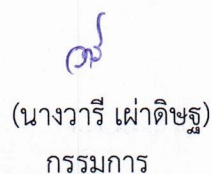 (นางวารี เผ่าดิษฐ)
กรรมการ